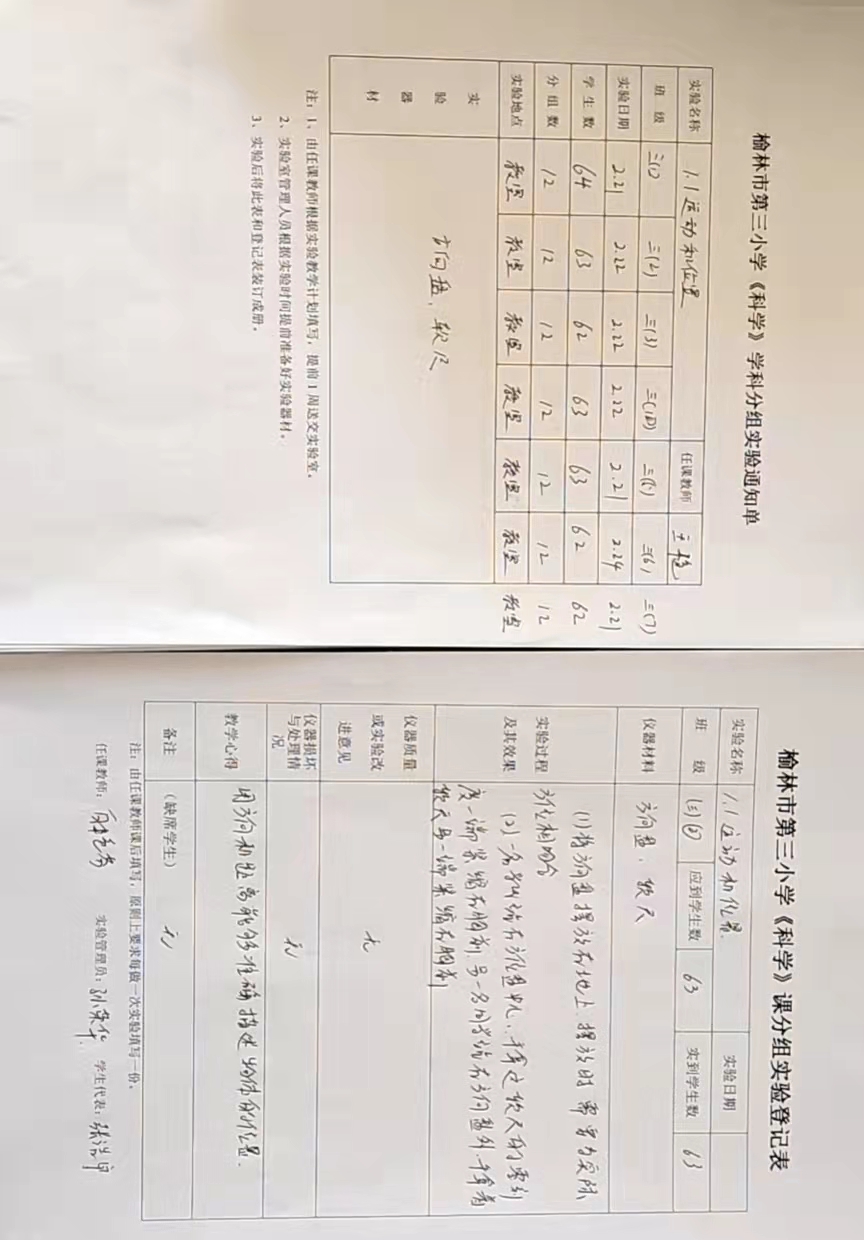 榆林市第三小学《科学》学科分组实验通知单
实验名称 1.1运动和位置 任课教师
班 级 三(1) 三(2) 三(3) 三(10) 三(6) 三(7)
实验日期 2.21 2.22 2.22 2.22 2.21 2.24 2.21
学 生 数 64 63 62 63 63 62 62
分 组 数 12 12 12 12 12 12 12
实验地点 教室 教室 教室 教室 教室 教室 教室
实 验 器 材 方向盘，软尺
注：1、由任课教师根据实验教学计划填写，提前1周送交实验室。
2、实验室管理人员根据实验时间提前准备好实验器材。
3、实验后将此表和登记表装订成册。
榆林市第三小学《科学》课分组实验登记表
实验名称 1.1运动和位置 实验日期
班 级 (三)(2) 应到学生数 63 实到学生数 63
仪器材料 方向盘、软尺
实验过程及其效果 (1)将方向盘摆放在地上，摆放时需要与实际
方位相吻合
(2)一名学生站在方位盘中心，并拿过软尺的零刻
度一端紧缩在胸前，另一名同学站在方向盘外，并拿着
软尺另一端紧缩在胸前
仪器质量或实验改进意见 无
仪器损坏与处理情况 无
教学心得 用方向和距离能够准确描述物体的位置.
备注 （缺席学生） 无
注：由任课教师课后填写，原则上要求每做一次实验填写一份。
任课教师： 实验管理员： 学生代表：